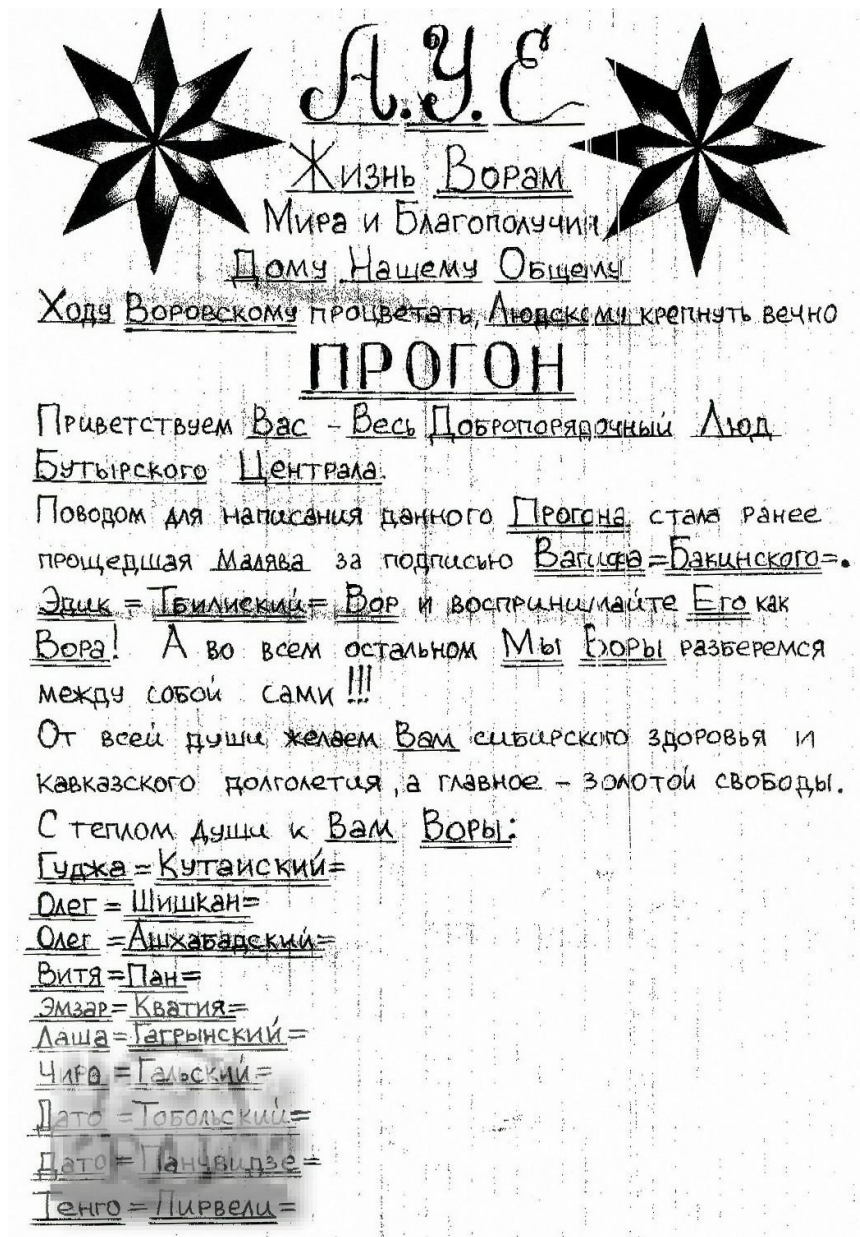 А.У.Е
Жизнь Ворам
Мира и Благополучия
Дому Нашему Общему
Ходу Воровскому процветать, Людскому крепнуть вечно
ПРОГОН
Приветствуем Вас - Весь Добропорядочный Люд
Бутырского Централа.
Поводом для написания данного Прогона стала ранее
прошедшая Малява за подписью Вагифа =Бакинского=.
Эдик =Тбилиский= Вор и воспринимайте Его как
Вора! А во всем остальном Мы Воры разберемся
между собой сами!!!
От всей души желаем Вам сибирского здоровья и
кавказского долголетия, а главное - золотой свободы.
С теплом души к Вам Воры:
Гуджа =Кутаиский=
Олег =Шишкан=
Олег =Ашхабадский=
Витя =Пан=
Эмзар =Кватия=
Лаша =Гагрынский=
Чиро =Гальский=
Дато =Тобольский=
Дато =Панчвидзе=
Тенго =Пирвели=